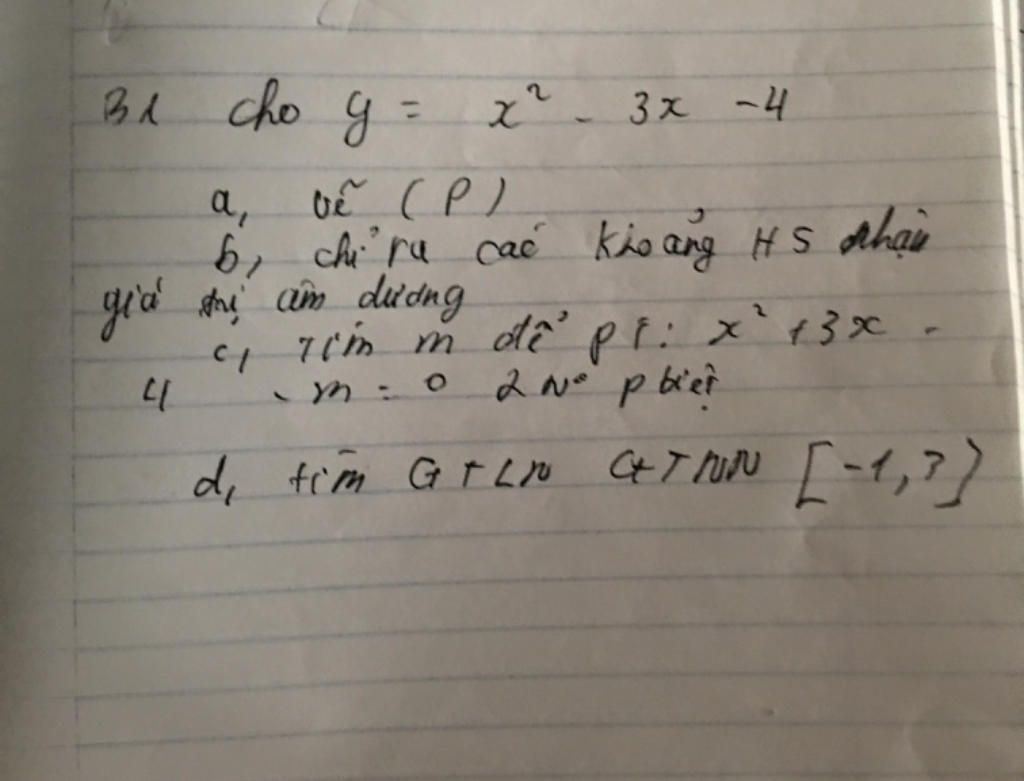 B1 cho y = x² - 3x - 4
a, vẽ (P)
b, chỉ ra các khoảng HS nhận
giá trị âm dương
c, Tìm m để pt: x² + 3x -
4 - m = 0 2 No p biệt
d, tìm GTLN GTNN [-1,3]